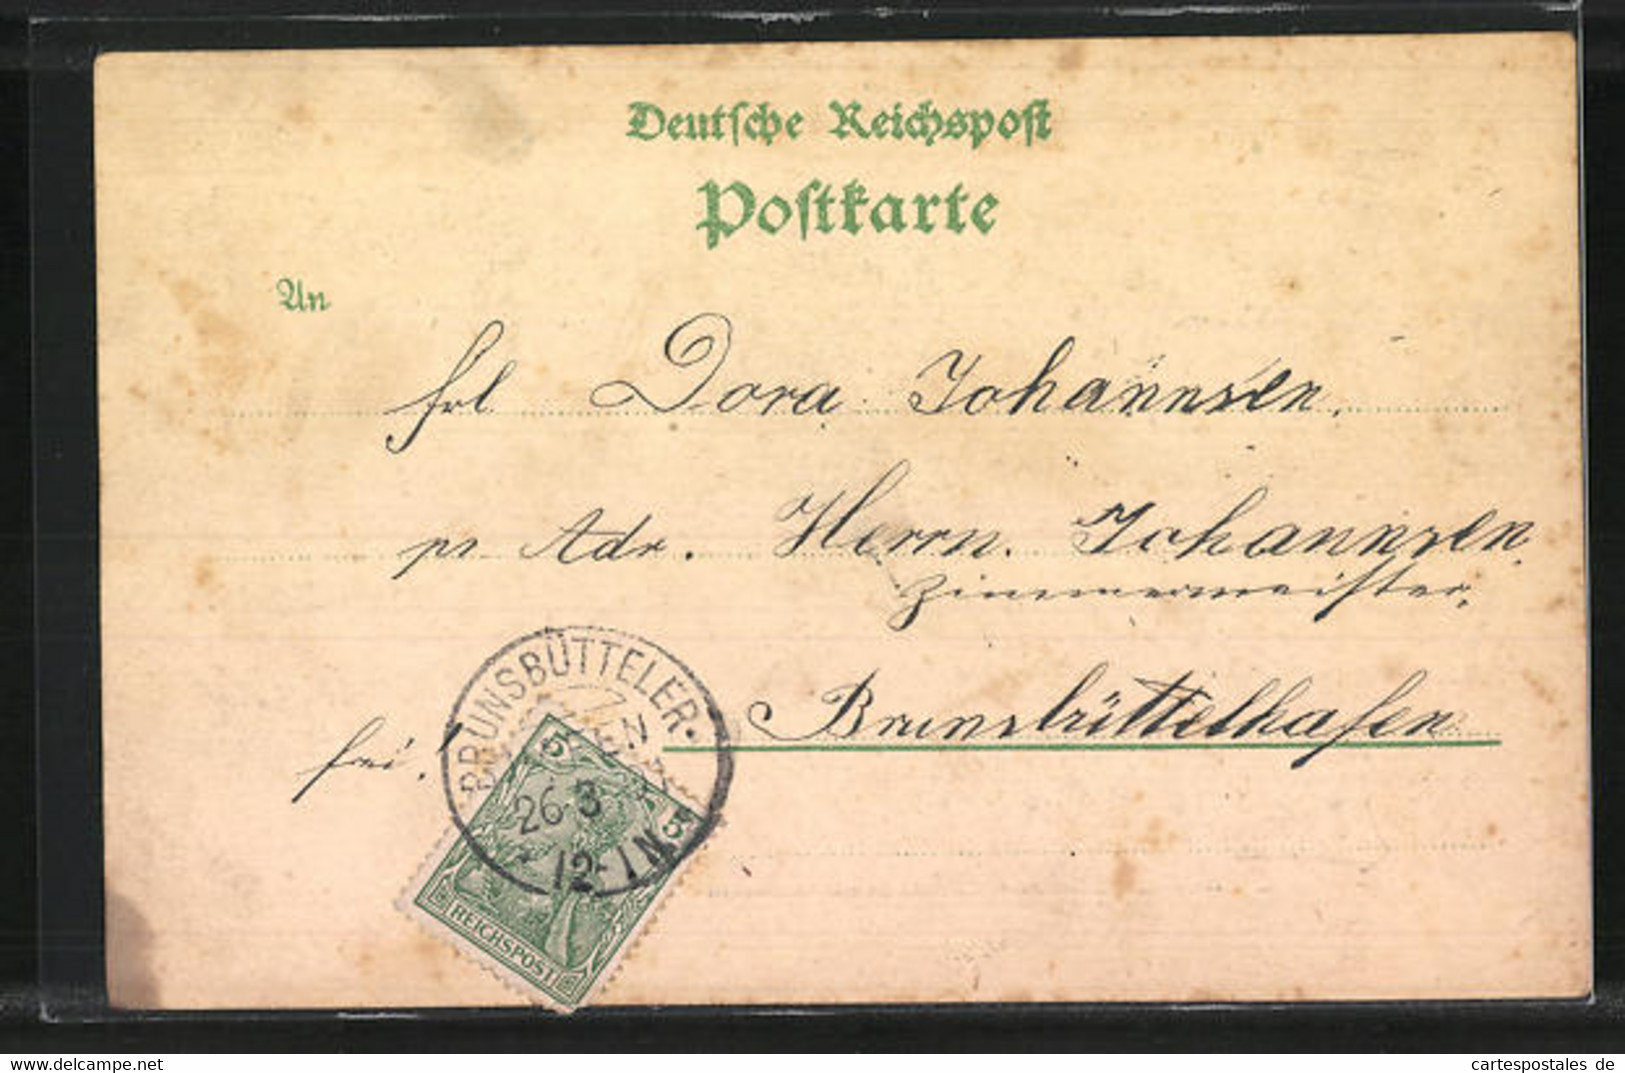 Deutsche Reichspost
Postkarte
An
Frl. Dora Johannsen.
pr. Adr. Herrn. Johannsen.
Zimmermeister.
Brunsbüttelhafen
frei!
BRUNSBÜTTELER-
26.3
12-1N
5
5
REICHSPOST
www.delcampe.net
cartespostales de